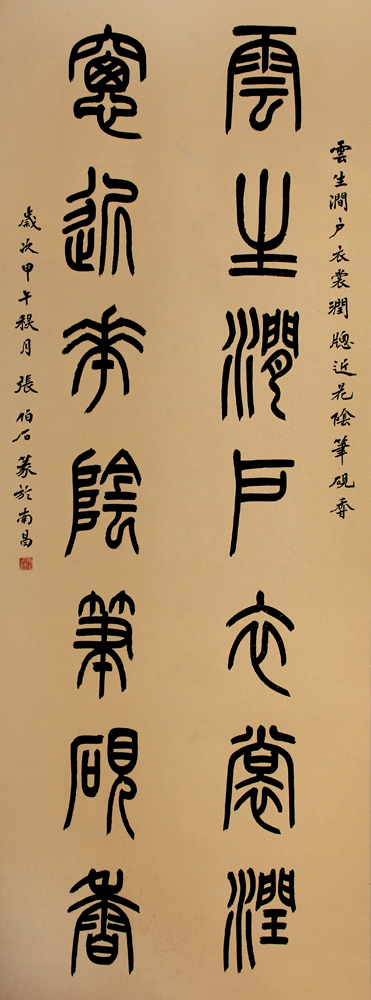 雲生澗户衣裳潤牕近花陰筆硯香
雲生澗户衣裳潤
窻近花陰筆硯香
歲次甲午秋月張伯石篆於南昌